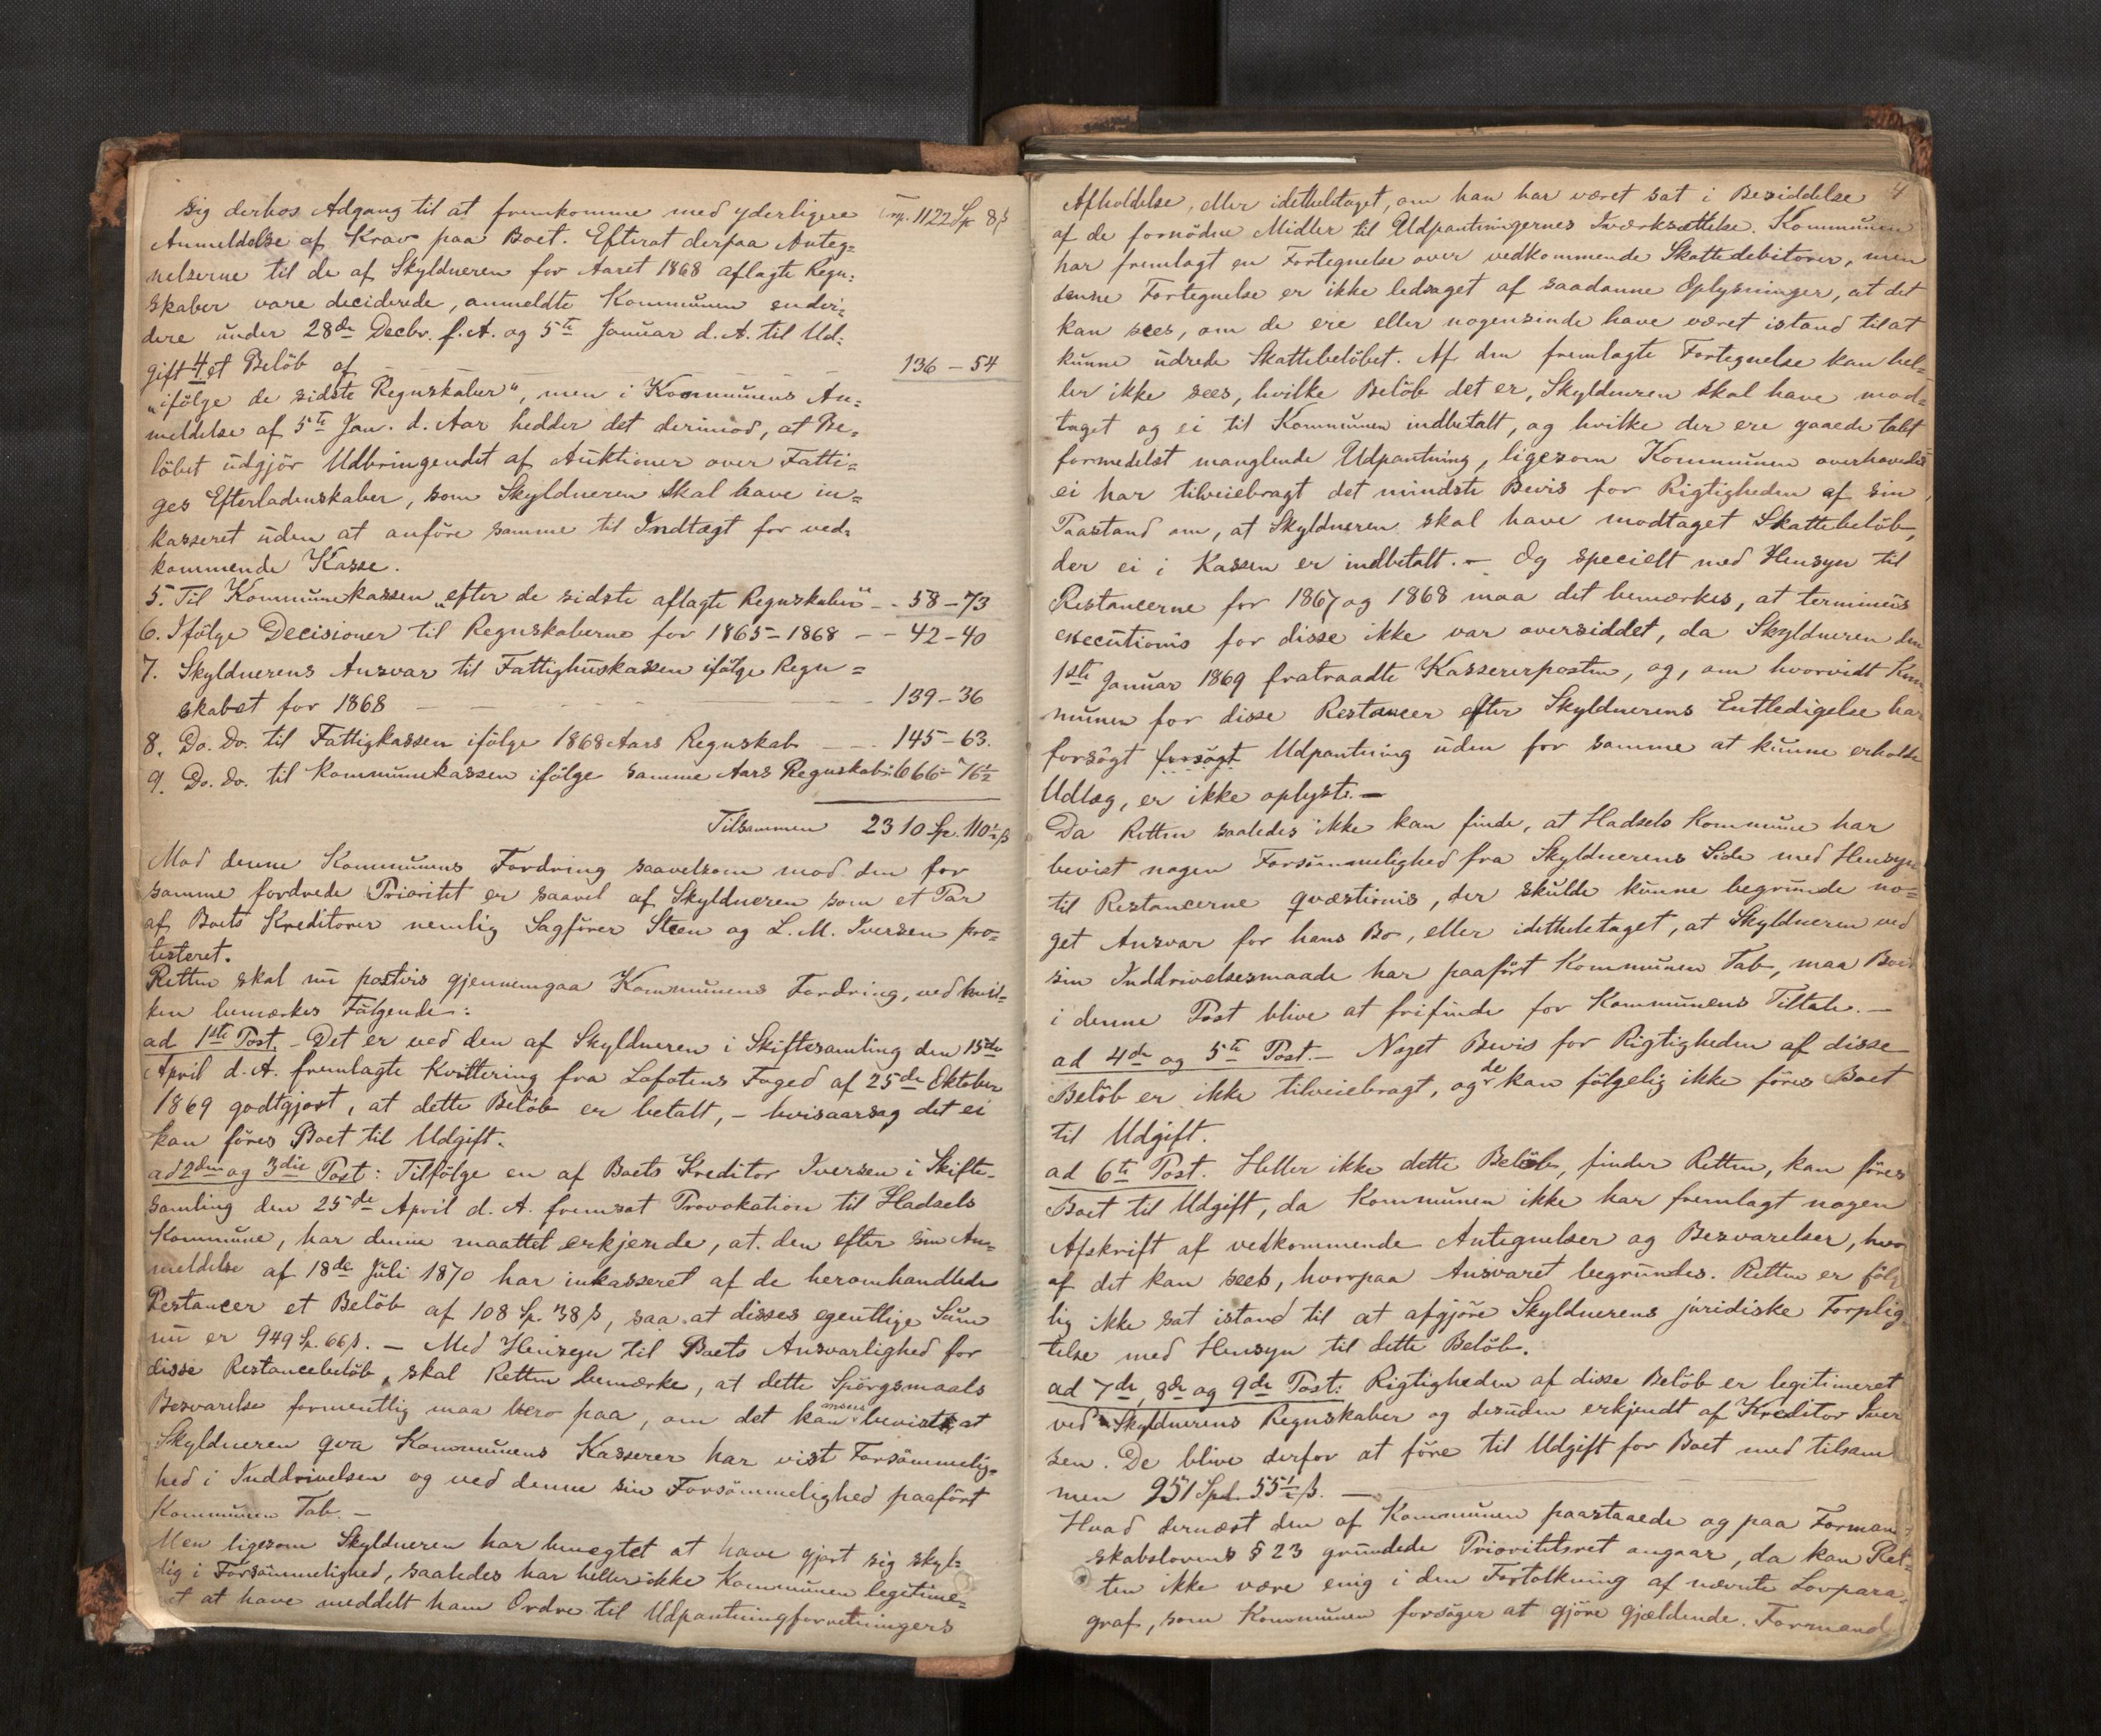 sig derhos Adgang til at fremkomme med yderligere Trp. 1122 Sp 8 ß
Anmeldelse af Krav paa Boet. Efterat derpaa Anteg-
nelserne til de af Skyldneren for Aaret 1868 aflagte Regn-
skaber vare deciderede, anmeldte Kommunen ender-
dere under 28de Decbr. f. A. og 5te Januar d. A. til Ud-
gift 4 et Beløb af — — — — 136 - 54
"ifølge de sidste Regnskaber", men i Kommunens An-
meldelse af 5te Jan. d. Aar hedder det derimod, at Be-
løbet udgjør Udbringendet af Auktioner over Fatti-
ges Efterladenskaber, som Skyldneren skal have in-
kasseret uden at anføre samme til Indtægt for ved-
kommende Kasse.
5. Til Kommunekassen "efter de sidste aflagte Regnskaber" - - 58 - 73
6. Ifølge Decisioner til Regnskaberne for 1865-1868 - - 42 - 40
7. Skyldnerens Ansvar til Fattighuskassen ifølge Regn-
skabet for 1868 — — — — 139 - 36
8. Do. do. til Fattigkassen ifølge 1868 Aars Regnskab - - - 145 - 63.
9. Do. do. til Kommunekassen ifølge samme Aars Regnskab: 666 - 76½
Tilsammen 2310 Sp. 110½ ß
Mod denne Kommunens Fordring saavelsom mod den for
samme fordrede Prioritet er saavel af Skyldneren som et Par
af Boets Kreditorer nemlig Sagfører Steen og L. M. Iversen pro-
testeret.
Retten skal nu postvis gjennemgaa Kommunens Fordring, ved hvil-
ken bemærkes Følgende:
ad 1ste Post. Det er ved den af Skyldneren i Skiftesamling den 15de
April d. A. fremlagte Kvittering fra Lofotens Foged af 25de Oktober
1869 godtgjort, at dette Beløb er betalt, - hvisaarsag det ei
kan føres Boet til Udgift.
ad 2den og 3die Post: Tilfølge en af Boets Kreditor Iversen i Skifte-
samling den 25de April d. A. fremsat Provokation til Hadsels
Kommune, har denne maattet erkjende, at den efter sin An-
meldelse af 18de Juli 1870 har inkasseret af de heromhandlede
Restancer et Beløb af 108 Sp. 38 ß, saa at disses egentlige Sum
nu er 949 Sp. 66 ß. - Med Hensyn til Boets Ansvarlighed for
disse Restancebeløb, skal Retten bemærke, at dette Spørgsmaals
Besvarelse formentlig maa bero paa, om det kan ansees bevist at
Skyldneren qva Kommunens Kasserer har vist Forsømmelig-
hed i Inddrivelsen og ved denne sin Forsømmelighed paaført
Kommunen Tab. -
Men ligesom Skyldneren har benegtet at have gjort sig skyl-
dig i Forsømmelighed, saaledes har heller ikke Kommunen legitime-
et at have meddelt ham Ordre til Udpantningforretningers
4
Afholdelse, eller idetheletaget, om han har været sat i Besiddelse
af de fornødne Midler til Udpantningernes Iværksættelse. Kommunen
har fremlagt en Fortegnelse over vedkommende Skattedebitorer, men
denne Fortegnelse er ikke ledsaget af saadanne Oplysninger, at det
kan sees, om de ere eller nogensinde have været istand til at
kunne udrede Skattebeløbet. Af den fremlagte Fortegnelse kan hel-
ler ikke sees, hvilke Beløb det er, Skyldneren skal have mod-
taget og ei til Kommunen indbetalt, og hvilke der ere gaaede tabt
formedelst manglende Udpantning, ligesom Kommunen overhovedet
ei har tilveiebragt det mindste Bevis for Rigtigheden af sin
Paastand om, at Skyldneren skal have modtaget Skattebeløb,
der ei i Kassen er indbetalt. - Og specielt med Hensyn til
Restancerne for 1867 og 1868 maa det bemærkes, at terminus
executionis for disse ikke var oversiddet, da Skyldneren den
1ste Januar 1869 fratraadte Kassererposten, og, om hvorvidt Kom-
munen for disse Restancer efter Skyldnerens Entledigelse har
forsøgt forsøgt Udpantning uden for samme at kunne erholde
Udlæg, er ikke oplyst. -
Da Retten saaledes ikke kan finde, at Hadsels Kommune har
bevist nogen Forsømmelighed fra Skyldnerens Side med Hensyn
til Restancerne qvæstionis, der skulde kunne begrunde no-
get Ansvar for hans Bo, eller idetheletaget, at Skyldneren ved
sin Inddrivelsesmaade har paaført Kommunen Tab, maa Boet
i denne Post blive at frifinde for Kommunens Tiltale. -
ad 4de og 5te Post. - Noget Bevis for Rigtigheden af disse
Beløb er ikke tilveiebragt, og de kan følgelig ikke føres Boet
til Udgift.
ad 6te Post. Heller ikke dette Beløb, finder Retten, kan føres
Boet til Udgift, da Kommunen ikke har fremlagt nogen
Afskrift af vedkommende Antegnelser og Besvarelser, hvor
af det kan sees, hvorpaa Ansvaret begrundes. Retten er følge
lig ikke sat istand til at afgjøre Skyldnerens juridiske Forplig-
telse med Hensyn til dette Beløb.
ad 7de, 8de og 9de Post: Rigtigheden af disse Beløb er legitimeret
ved Skyldnerens Regnskaber og desuden erkjendt af Kreditor Iver
sen. De blive derfor at føre til Udgift for Boet med tilsam
men 951 Spd. 55½ ß. -
Hvad dernæst den af Kommunen paastaaede og paa Forman-
skabslovens § 23 grundede Prioritetsret angaar, da kan Ret-
ten ikke være enig i den Fortolkning af nævnte Lovpara-
graf, som Kommunen forsøger at gjøre gjældende. Formand